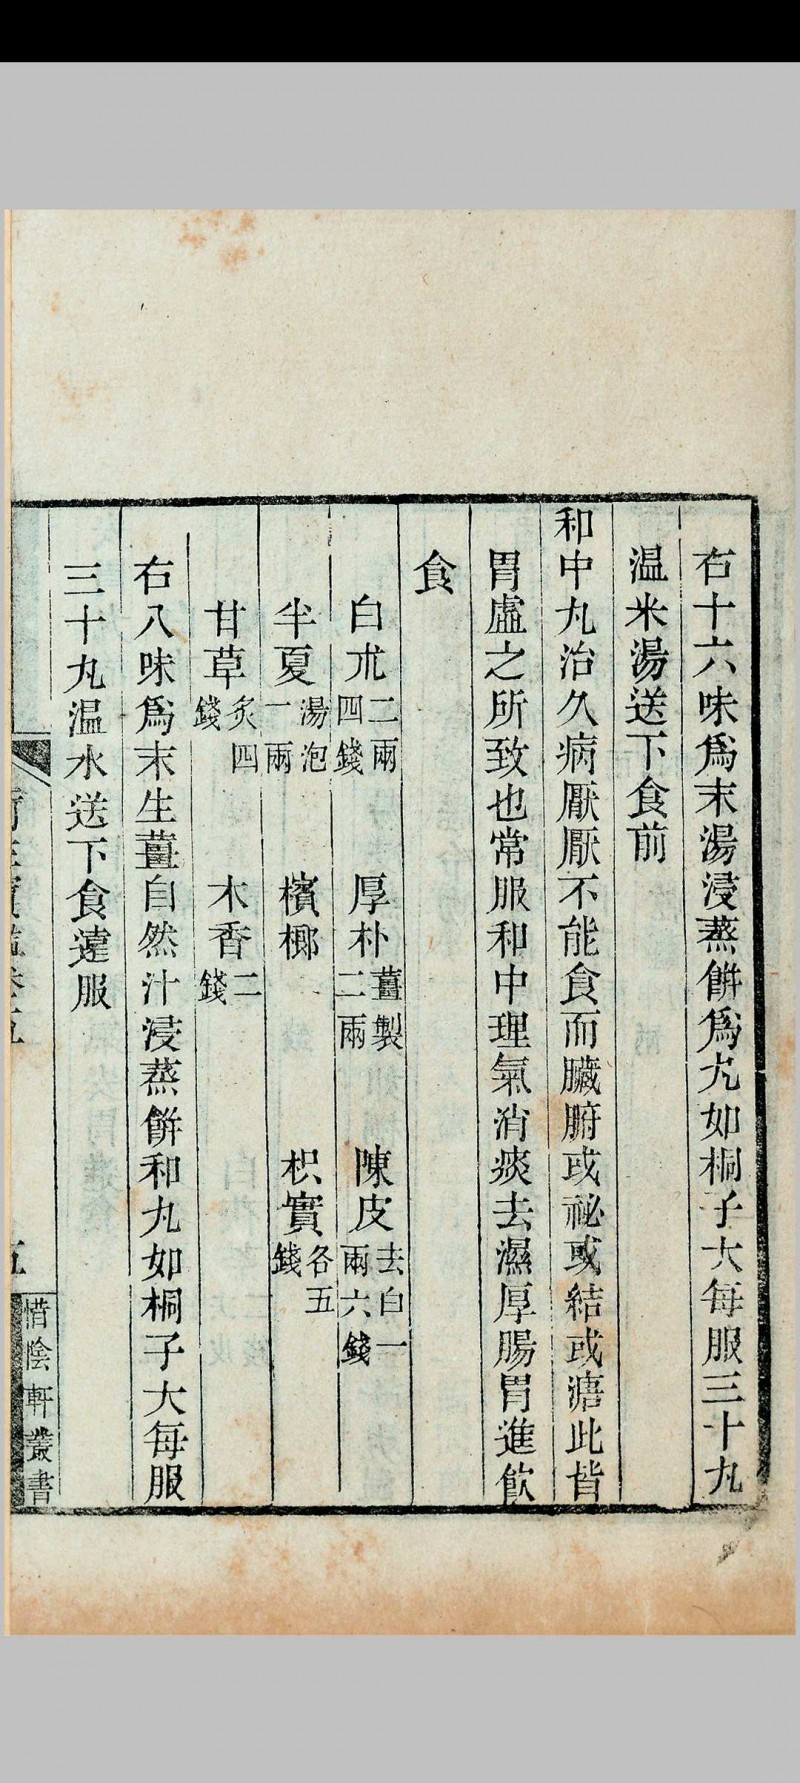 右十六味爲末湯浸蒸餠爲丸如桐子大每服三十丸
温米湯送下食前
和中丸治久病厭厭不能食而臟腑或祕或結或溏此皆
胃虛之所致也常服和中理氣消痰去濕厚腸胃進飲
食
白朮二兩四錢 厚朴薑製二兩 陳皮去白一兩六錢
半夏湯泡一兩 檳榔 枳實各五錢
甘草炙四錢 木香二錢
右八味爲末生薑自然汁浸蒸餠和丸如桐子大每服
三十丸温水送下食遠服
五
惜陰軒叢書